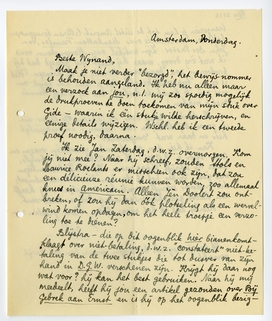 Amsterdam, Donderdag.
Beste Wynand,
Maak je niet verder "bezorgd", het dewijs-nommer
is behouden aangeland. Ik heb nu alleen maar
een verzoek aan jou, n.l. mij zoo spoedig mogelijk
de drukproeven te doen toekomen van mijn stuk over
Gide – waarin ik een stukje wilde herschrijven, en
eenige details wijzigen. Wscht. heb ik een tweede
proef noodig, daarna.
Ik zie Jan Zaterdag, d.w.z. overmorgen. Kom
jij niet mee? Naar hij schreef, zouden Stols en
Maurice Roelants er misschien ook zijn, dat zou
een delicieuze reünie kunnen worden, zoo allemaal
in americain. Alleen Ten
breken, of zou hij dan ook plotseling als een wervel-
wind komen opdagen, om het heele troepje een verzo-
ling toe te dienen?
Blijstra – die op dit oogenblik hier binnenkomt –
klaagt over niet-betaling, d.w.z. "constateert" niet-be-
taling van de twee stukjes die tot dusver van zijn
hand in D.G.W. verschenen zijn. Krijgt hij daar nog
wat voor? hij kan het best gebruiken. Naar hij mij
meedeelt, heeft hij jou een artikel gezonden over Bij
Gebrek aan Ernst en is hij op het oogenblik bezig –